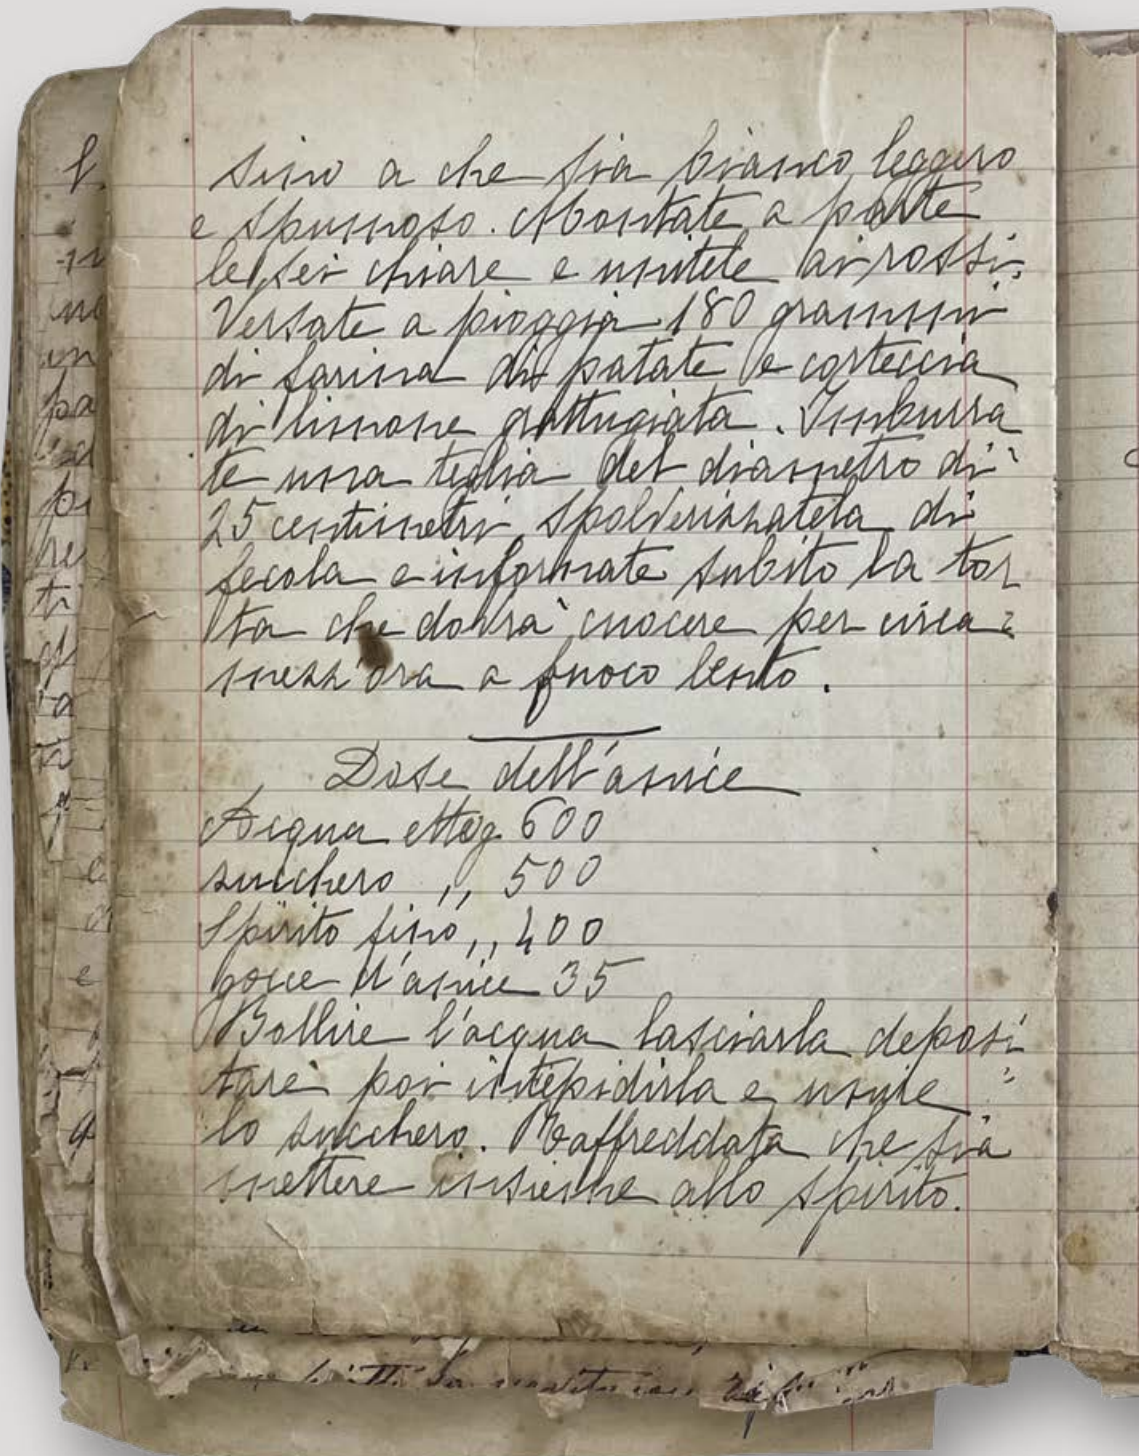 sino a che sia bianco leggero
e spumoso. Montate a parte
le sei chiare e unitele ai rossi.
Versate a pioggia 180 grammi
di farina di patate e corteccia
di limone grattugiata. Imburra
te una teglia del diametro di
25 centimetri, spolverizzatela di
fecola e infornate subito la tor
ta che dovrà cuocere per circa
mezz'ora a fuoco lento.
Dose dell'anice
Acqua Mg 600
zucchero ,, 500
Spirito fino ,, 400
gocce d'anice 35
Bollire l'acqua lasciarla deposi
tare poi intepidirla e unire
lo zucchero. Raffreddata che sia
mettere insieme allo spirito.